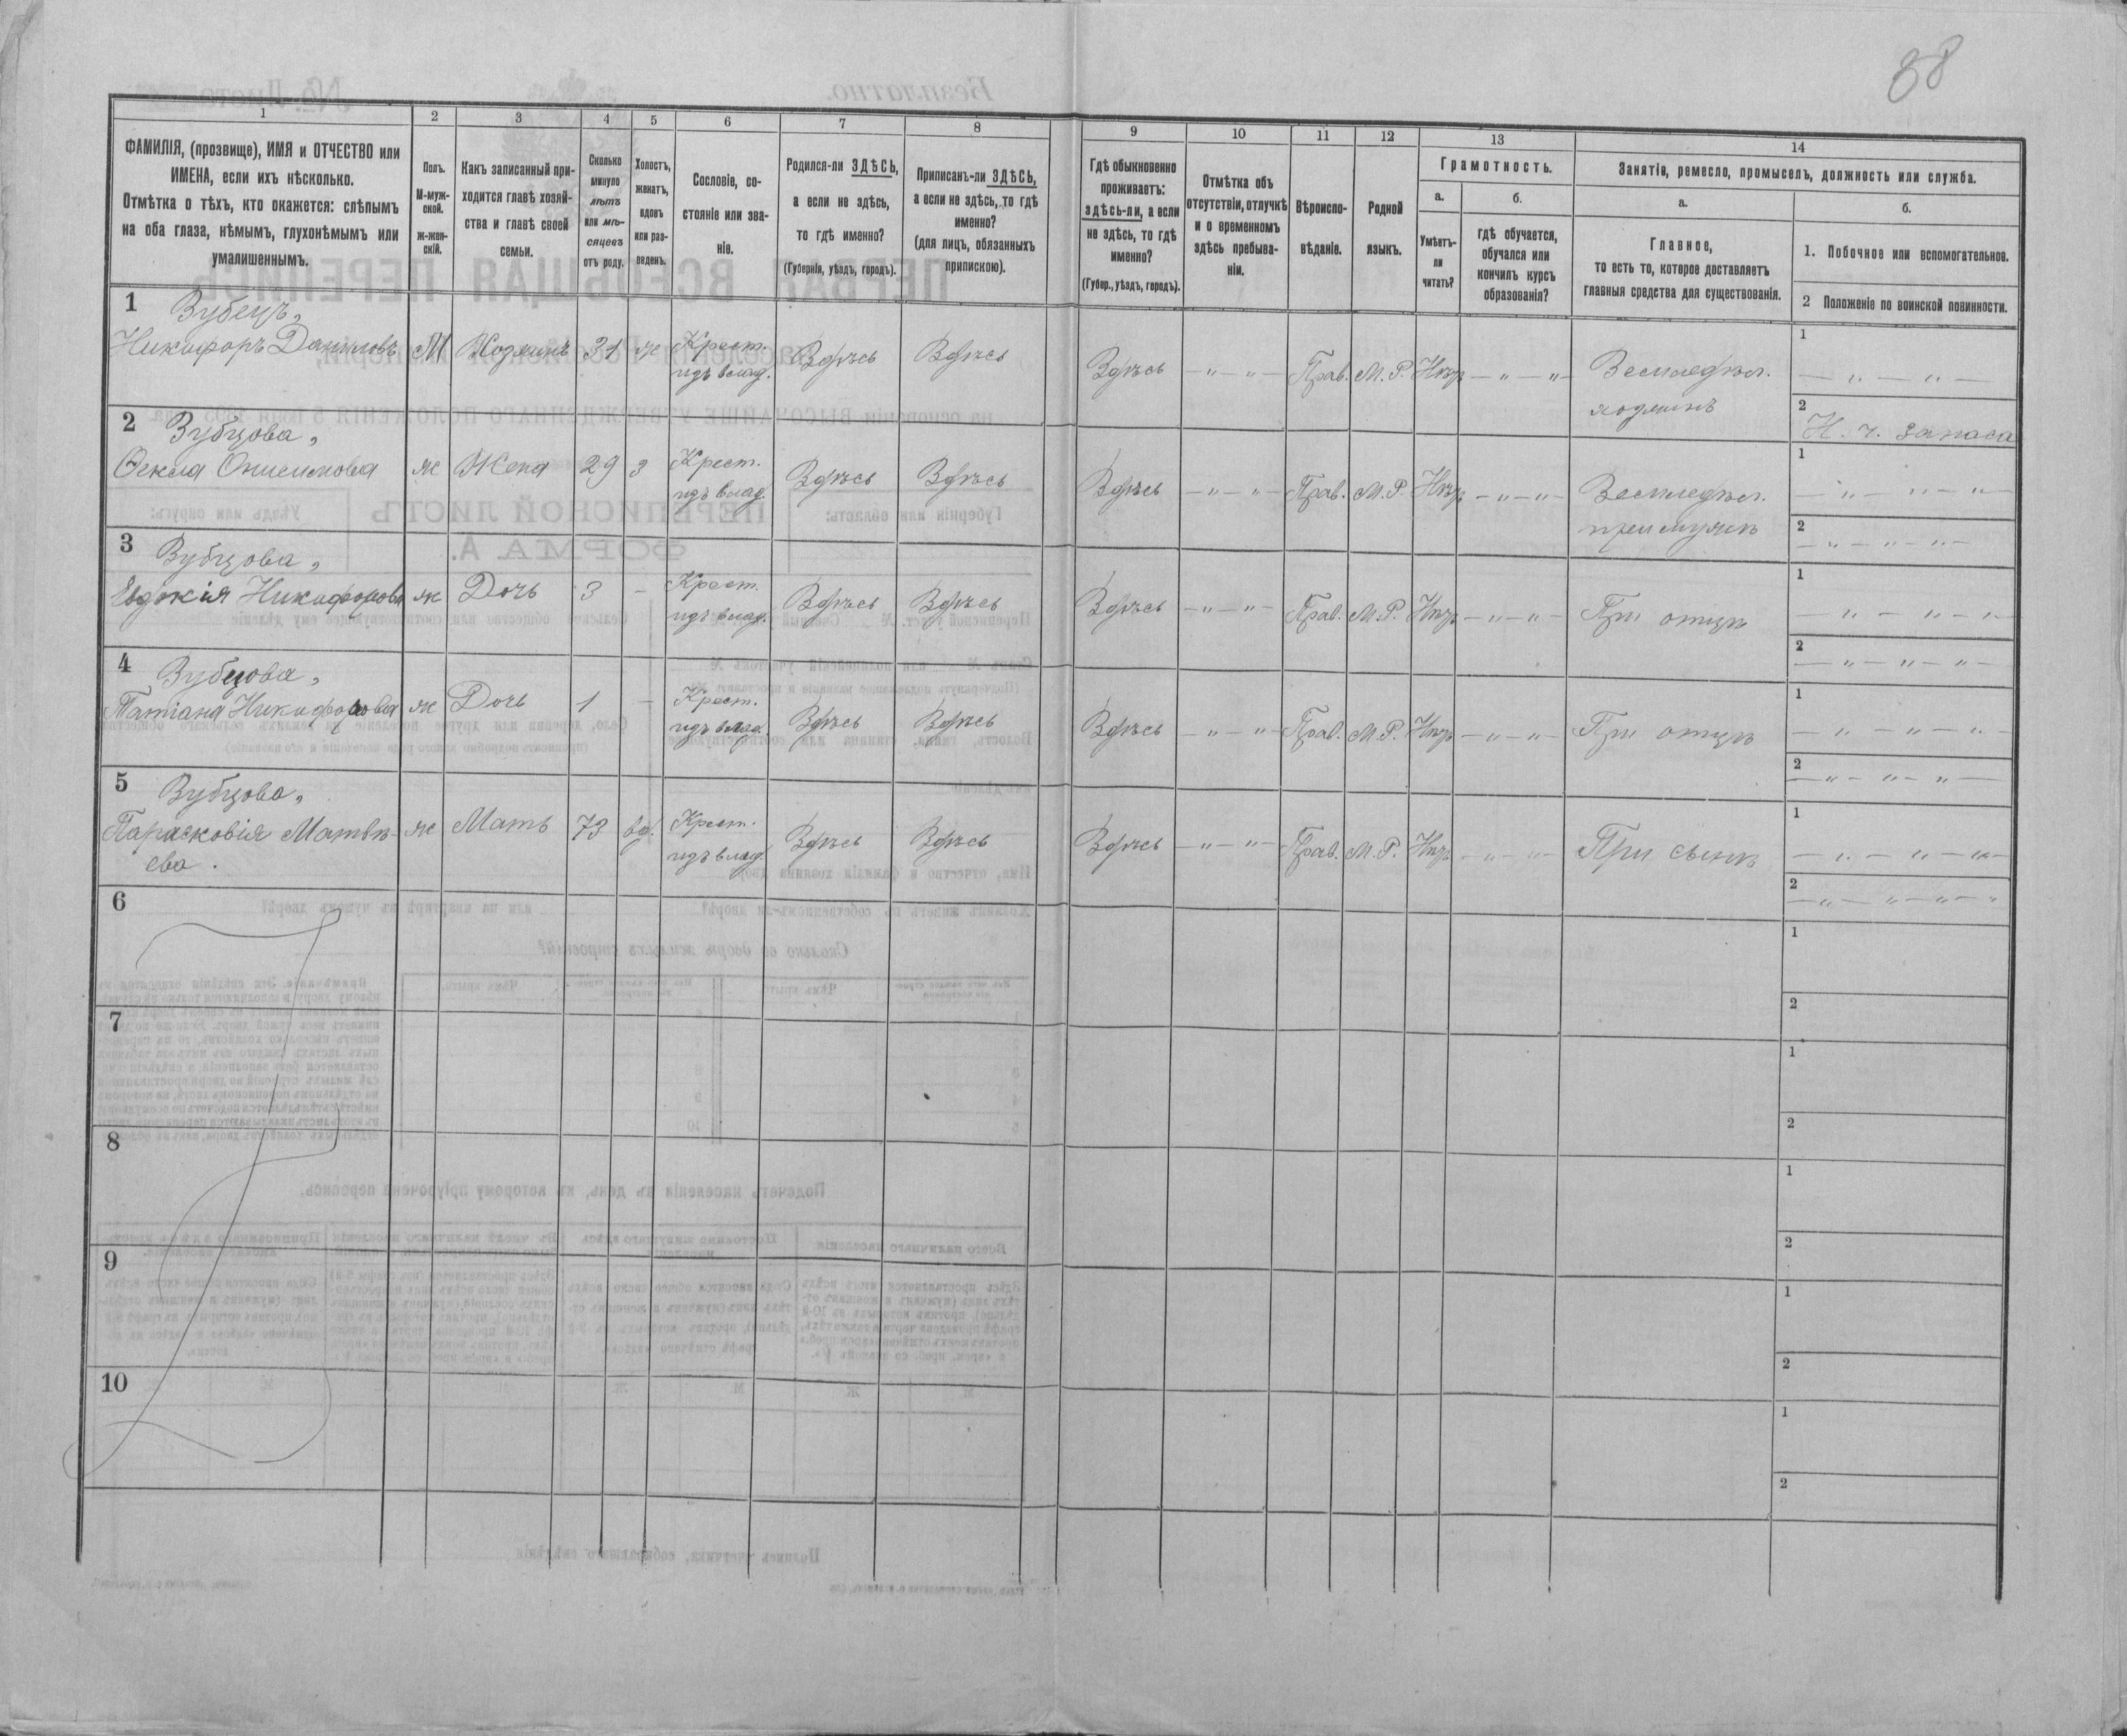 88
1 2 3 4 5 6 7 8 9 10 11 12 13 14
ФАМИЛІЯ, (прозвище), ИМЯ и ОТЧЕСТВО или ИМЕНА, если ихъ нѣсколько.
Отмѣтка о тѣхъ, кто окажется: слѣпымъ на оба глаза, нѣмымъ, глухонѣмымъ или умалишеннымъ.
Полъ. М-мужской. ж-женскій.
Какъ записанный приходится главѣ хозяйства и главѣ своей семьи.
Сколько минуло лѣтъ или мѣсяцевъ отъ роду.
Холостъ, женатъ, вдовъ или разведенъ.
Сословіе, состояніе или званіе.
Родился-ли ЗДѢСЬ, а если не здѣсь, то гдѣ именно?
(Губернія, уѣздъ, городъ).
Приписанъ-ли ЗДѢСЬ, а если не здѣсь, то гдѣ именно?
(для лицъ, обязанныхъ припискою).
Гдѣ обыкновенно проживаетъ: здѣсь-ли, а если не здѣсь, то гдѣ именно?
(Губер., уѣздъ, городъ).
Отмѣтка объ отсутствіи, отлучкѣ и о временномъ здѣсь пребываніи.
Вѣроисповѣданіе.
Родной языкъ.
Грамотность.
а.
Умѣетъ-ли читать?
б.
гдѣ обучается, обучался или кончилъ курсъ образованія?
Занятіе, ремесло, промыселъ, должность или служба.
а.
Главное,
то есть то, которое доставляетъ главныя средства для существованія.
б.
1. Побочное или вспомогательное.
2 Положеніе по воинской повинности.
1 Зубецъ,
Никифоръ Даниловъ М Хозяинъ 31 ж Крест. изъ влад. Здѣсь Здѣсь Здѣсь — " — " — Прав. М. Р. Нѣтъ — " — " Земледѣл. хозяинъ 1 — " — " — 2 Н. ч. запаса
2 Зубцова,
Ѳекла Онисимова ж Жена 29 з Крест. изъ влад. Здѣсь Здѣсь Здѣсь — " — " Прав. М. Р. Нѣтъ — " — " — Земледѣл. при мужѣ 1 — " — " — " 2 — " — " — " —
3 Зубцова,
Евдокія Никифорова ж Дочь 3 — Крест. изъ влад. Здѣсь Здѣсь Здѣсь — " — " — Прав. М. Р. Нѣтъ — " — " — При отцѣ 1 — " — " — " — 2 — " — " — " —
4 Зубцова,
Татіана Никифорова ж Дочь 1 — Крест. изъ влад. Здѣсь Здѣсь Здѣсь — " — " Прав. М. Р. Нѣтъ — " — " — При отцѣ 1 — " — " — " — 2 — " — " — " —
5 Зубцова,
Парасковія Матвѣева. ж Мать 73 вд. Крест. изъ влад. Здѣсь Здѣсь Здѣсь — " — " — Прав. М. Р. Нѣтъ — " — " — При сынѣ 1 — " — " — " — 2 — " — " — " — "
6 1 2
7 1 2
8 1 2
9 1 2
10 1 2